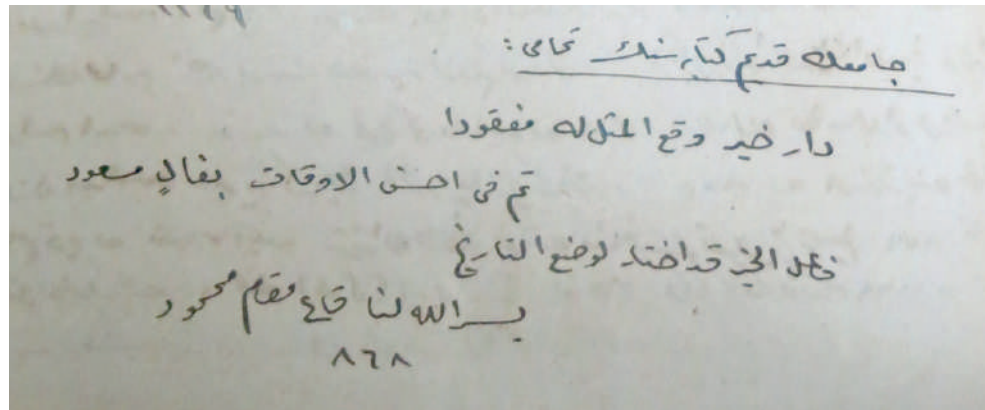 جامعك قديم كتابه سنك تمامى :
دار خير وقع المثل له مفقودا
تم فى احسن الاوقات بفالٍ مسعود
فاعل الخير قد اختار لوضع التاريخ
يسر الله لنا قاع مقام محمود
٨٦٨